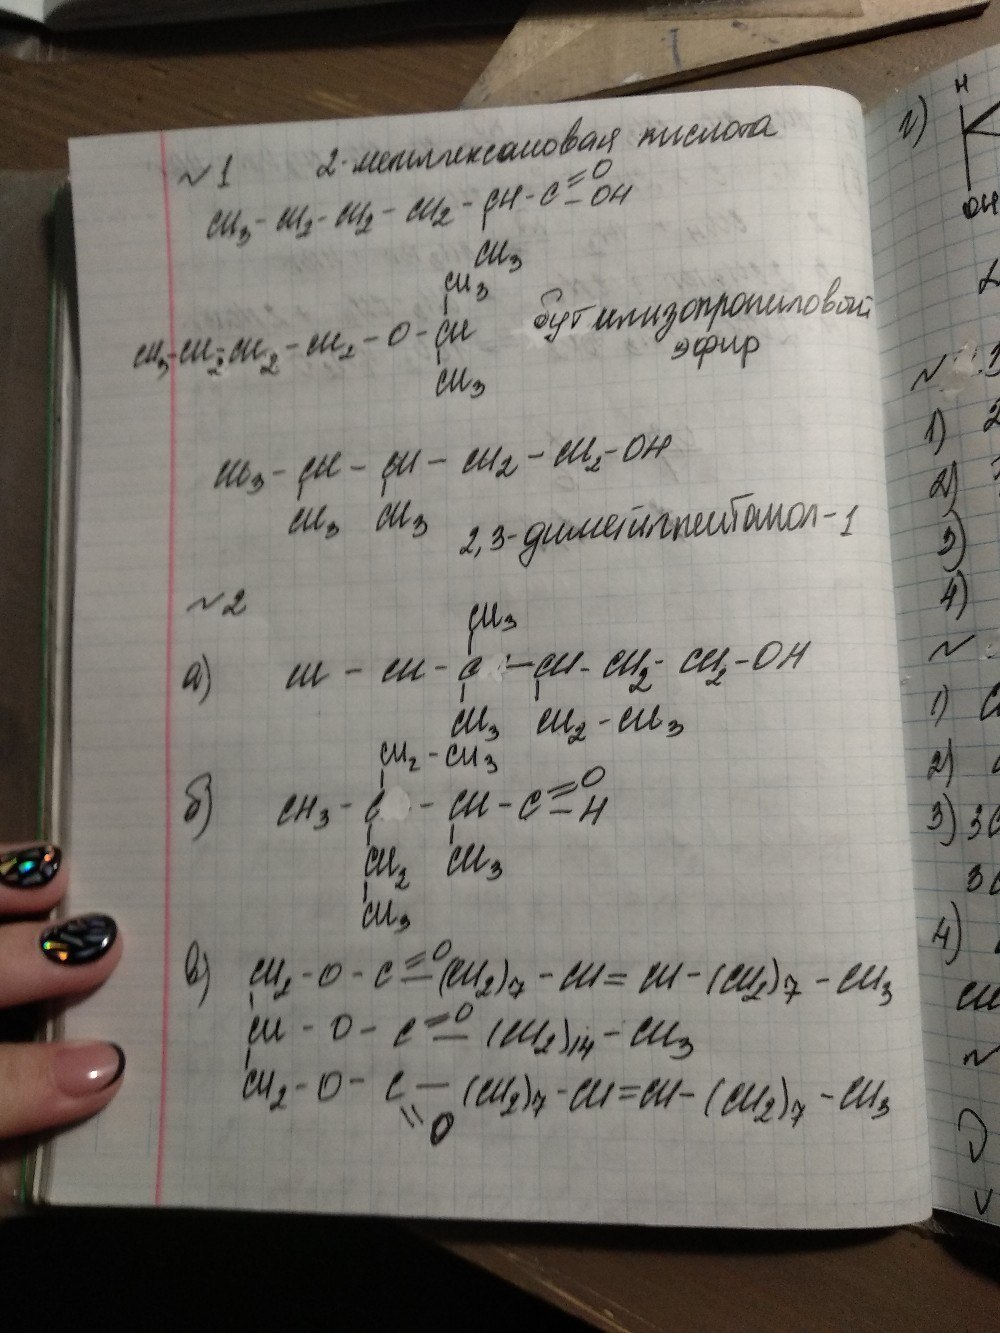 №1 2-метилгексановая кислота
CH3 - CH2 - CH2 - CH2 - CH - C = O - OH
CH3
CH3
CH3 - CH2 - CH2 - CH2 - O - CH бутилизопропиловый
эфир
CH3
CH3 - CH - CH - CH2 - CH2 - OH
CH3 CH3
2,3-диметилпентанол-1
№2
CH3
а) CH - CH - C - CH - CH2 - CH2 - OH
CH3 CH2 - CH3
CH2 - CH3
б) CH3 - C - CH - C = O - H
CH2 CH3
CH3
в) CH2 - O - C = O - (CH2)7 - CH = CH - (CH2)7 - CH3
CH - O - C = O - (CH2)14 - CH3
CH2 - O - C - (CH2)7 - CH = CH - (CH2)7 - CH3
O
г)
H
OH
№
1)
2)
3)
4)
1)
2)
3) 3
3
4)